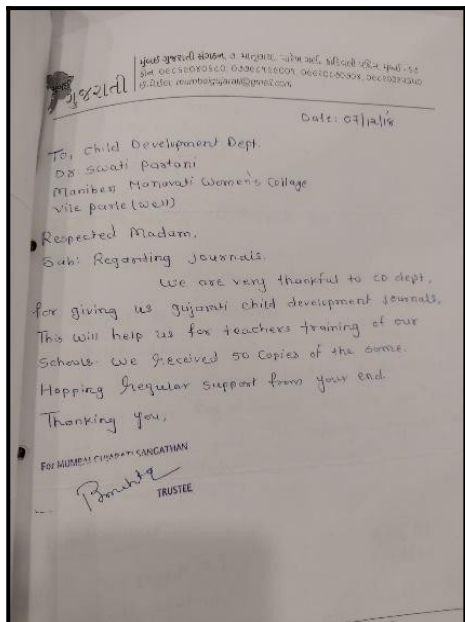 મુંબઈ ગુજરાતી સંગઠન,
ગુજરાતી
mumbaigujarati@gmail.com
Date: 07/12/18
To, Child Development Dept.
Dr Swati Partani
Maniben Nanavati Women's Collage
Vile parle (west)
Respected Madam,
Sub: Regarding Journals.
We are very thankful to CD dept.
for giving us gujarati child development Journals,
This will help us for teachers training of our
Schools. We Received 50 Copies of the same.
Hopping Regular Support from your end.
Thanking you,
For MUMBAI GUJARATI SANGATHAN
TRUSTEE